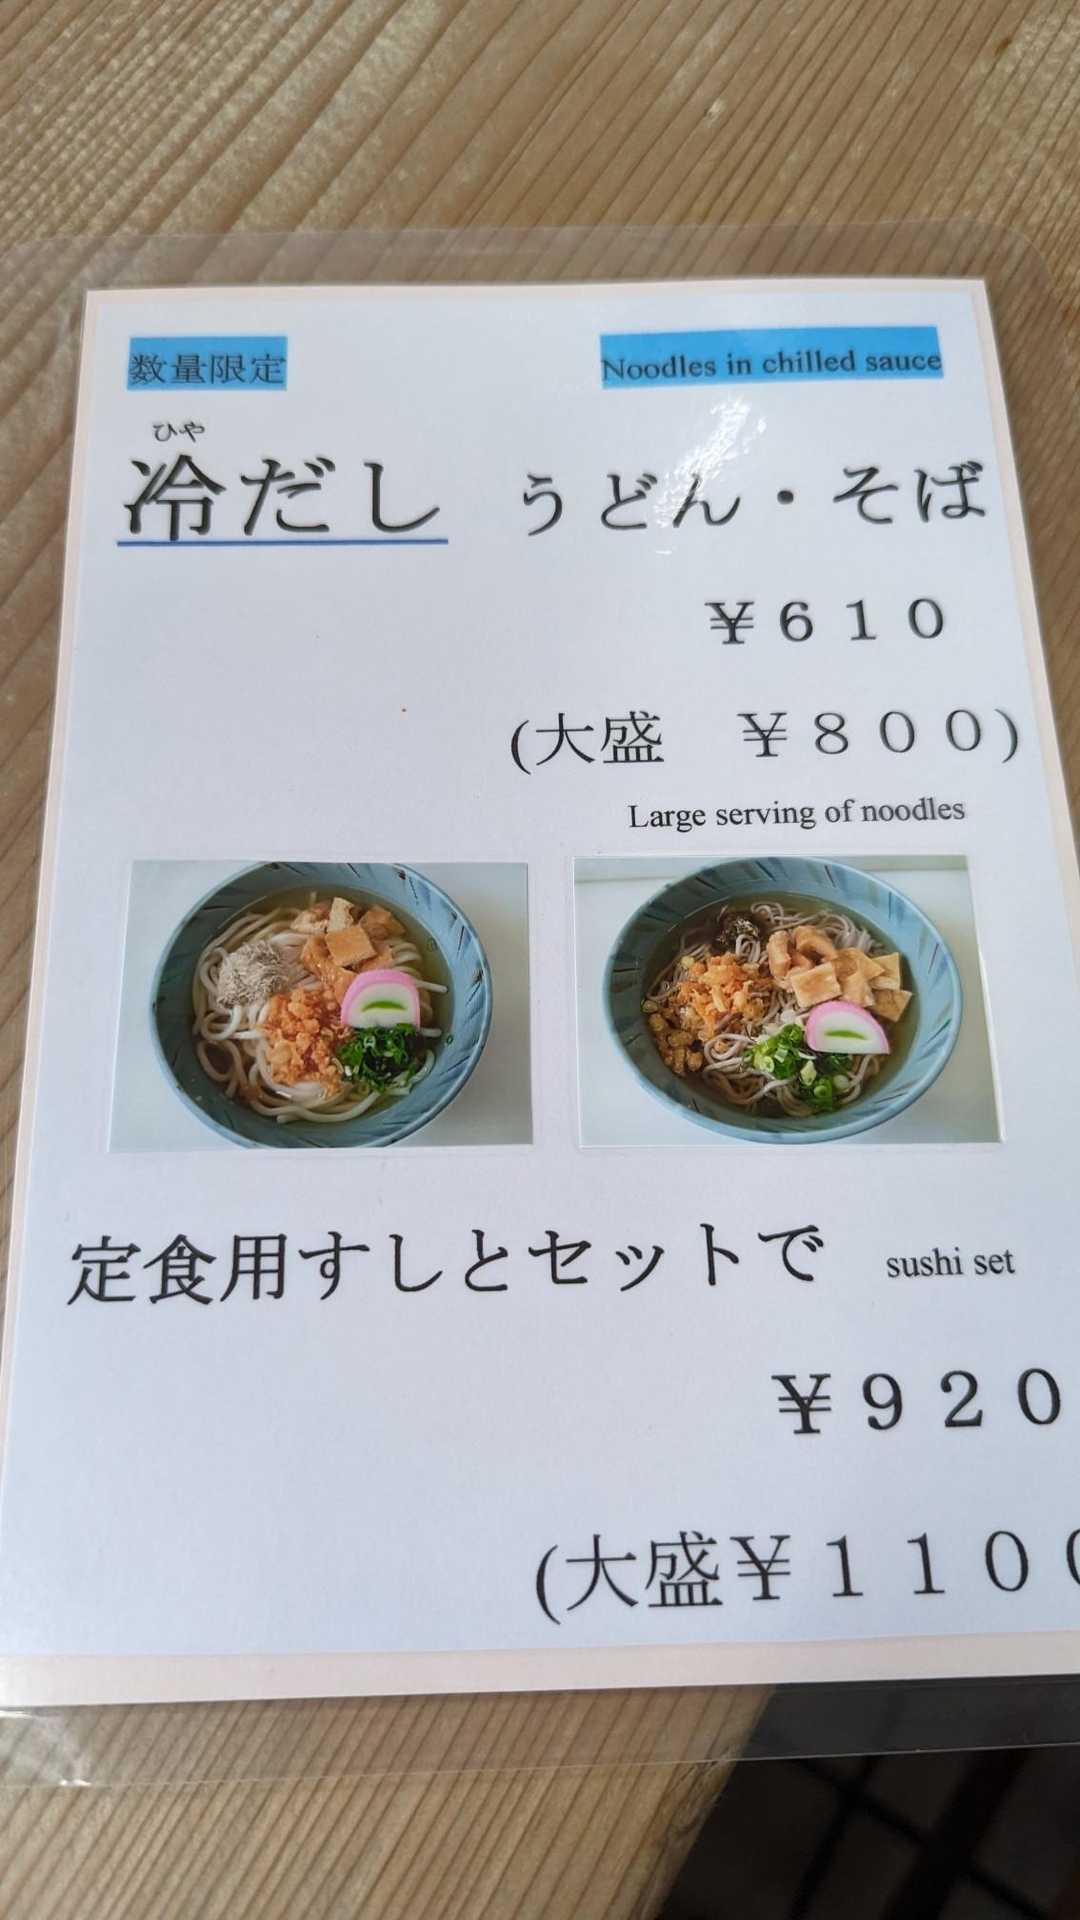 数量限定 Noodles in chilled sauce
ひや
冷だし うどん・そば
￥６１０
(大盛 ￥８００)
Large serving of noodles
定食用すしとセットで sushi set
￥９２０
(大盛￥１１００